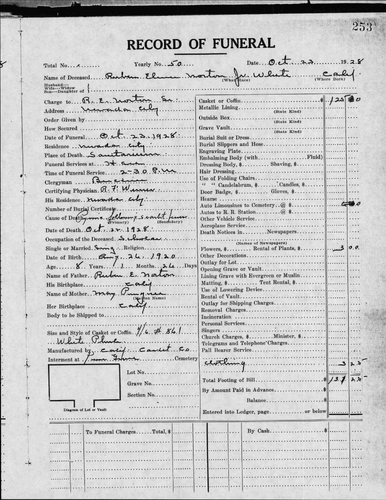 253
RECORD OF FUNERAL
Total No. Yearly No. 50 Date Oct. 22 1928
Name of Deceased Ruben Norton Jr. White Calif
Husband—
Wife—Widow—
Son—Daughter of
Charge to R. E. Norton Sr.
Address Nevada City
Order Given by
How Secured
Date of Funeral Oct. 23, 1928
Residence Nevada City
Place of Death Sanitarium
Funeral Services at
Time of Funeral Service 2-30 P.M.
Clergyman
Certifying Physician
His Residence Nevada City
Number of Burial Certificate
Cause of Death scarlet fever
Date of Death Oct. 22, 1928
Occupation of the Deceased School
Single or Married Sing Religion
Date of Birth Aug. 26 1920
Age 8 Years 1 Months 26 Days
Name of Father Ruben E. Norton
His Birthplace Calif
Name of Mother May
(Maiden Name)
Her Birthplace Calif.
Body to be Shipped to
Size and Style of Casket or Coffin 4/6 # 861
White Plush
Manufactured by Calif. Casket Co.
Interment at Cemetery
Lot No.
Grave No.
Section No.
Diagram of Lot or Vault
Casket or Coffin $ 125 00
Metallic Lining
(State Kind)
Outside Box
(State Kind)
Grave Vault
(State Kind)
Burial Suit or Dress
Burial Slippers and Hose
Engraving Plate
Embalming Body (with Fluid)
Dressing Body, $ Shaving, $
Hair Dressing
Use of Folding Chairs
" " Candelabrum, $ Candles, $
Door Badge, $ Gloves, $
Hearse
Auto Limousines to Cemetery @ $
Autos to R. R. Station @ $
Other Vehicle Service
Aeroplane Service
Death Notices in Newspapers
(Names of Newspapers)
Flowers, $ Rental of Plants, $ 3 00
Other Decorations
Outlay for Lot
Opening Grave or Vault
Lining Grave with Evergreen or Muslin
Matting, $ Tent Rental, $
Use of Lowering Device
Rental of Vault
Outlay for Shipping Charges
Removal Charges
Incineration
Personal Services
Singers
Church Charges, $ Minister, $
Telegrams and Telephone Charges
Pall Bearer Service
Clothing 3 25
Total Footing of Bill $
By Amount Paid in Advance $
Balance $
Entered into Ledger, page or below
To Funeral Charges Total, $
By Cash $